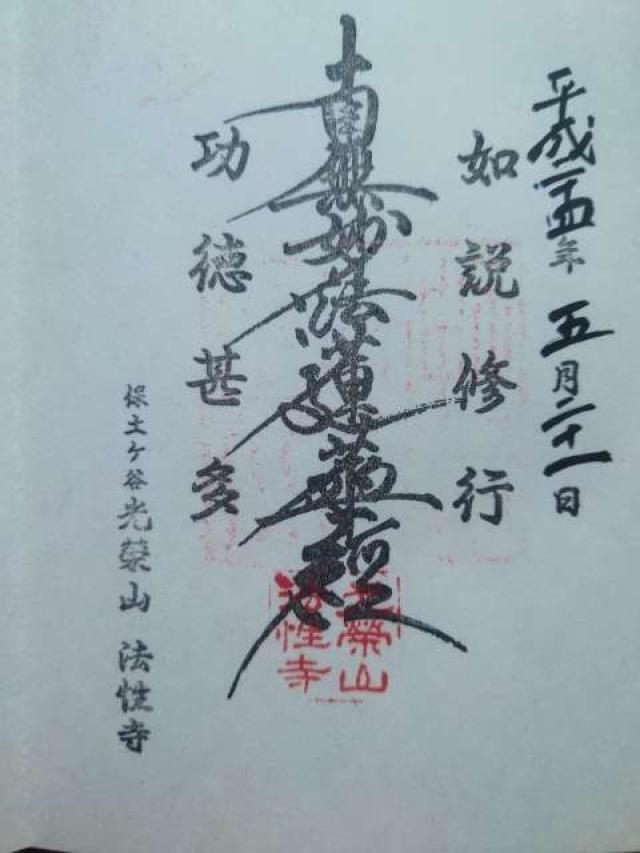 平成二十四年 五月二十一日
如説修行
南無妙法蓮華經
功徳甚多
保土ケ谷 光榮山 法性寺
光榮山
法性寺